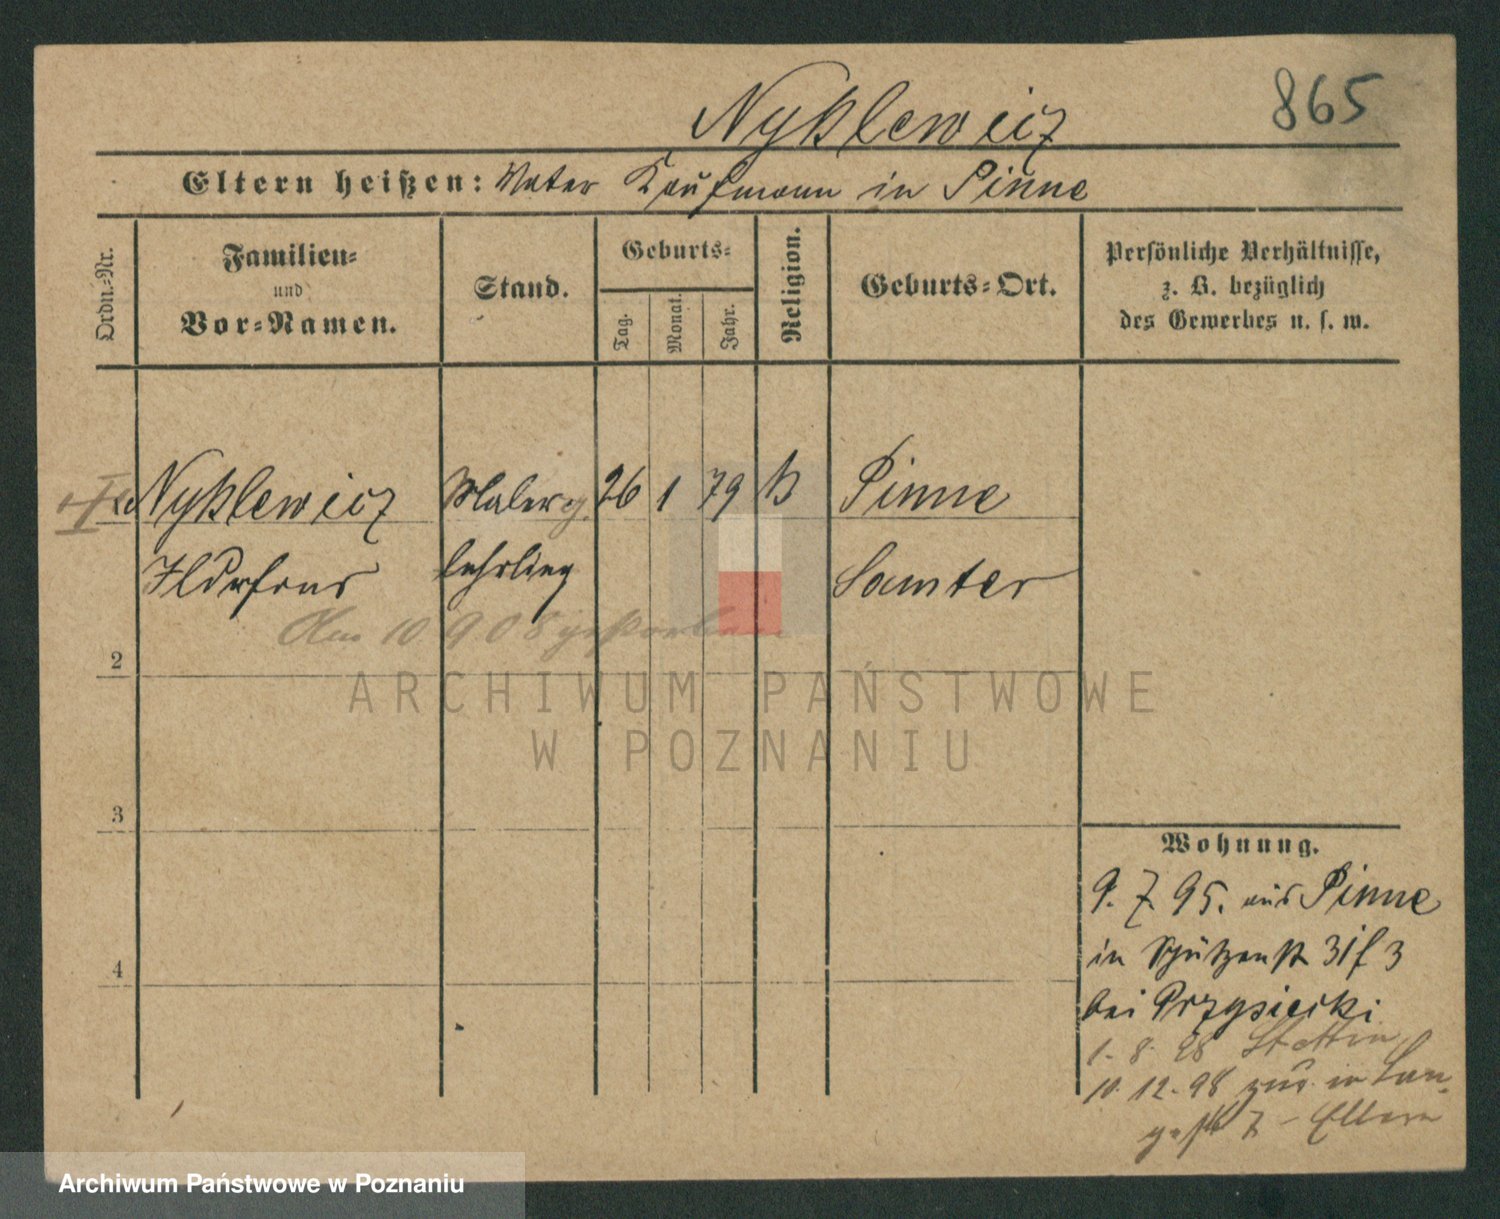 865
Nyklewicz
Eltern heißen: Vater Kaufmann in Pinne
Ordn.-Nr.
Familien-
und
Vor-Namen.
Stand.
Geburts-
Tag.
Monat.
Jahr.
Religion.
Geburts-Ort.
Persönliche Verhältnisse,
z. B. bezüglich
des Gewerbes u. s. w.
Nyklewicz Maler 26 1 79 k Pinne
Ildefons lehrling Samter
Am 10 9 08 gestorben
2
ARCHIWUM PAŃSTWOWE
W POZNANIU
3
4
Wohnung.
9. 7. 95. aus Pinne
in Schützenstr 31 3
bei Przysiecki
1. 8. 98 Stettin
10. 12. 98 zur. in Lan-
gestr 7 - Eltern
Archiwum Państwowe w Poznaniu